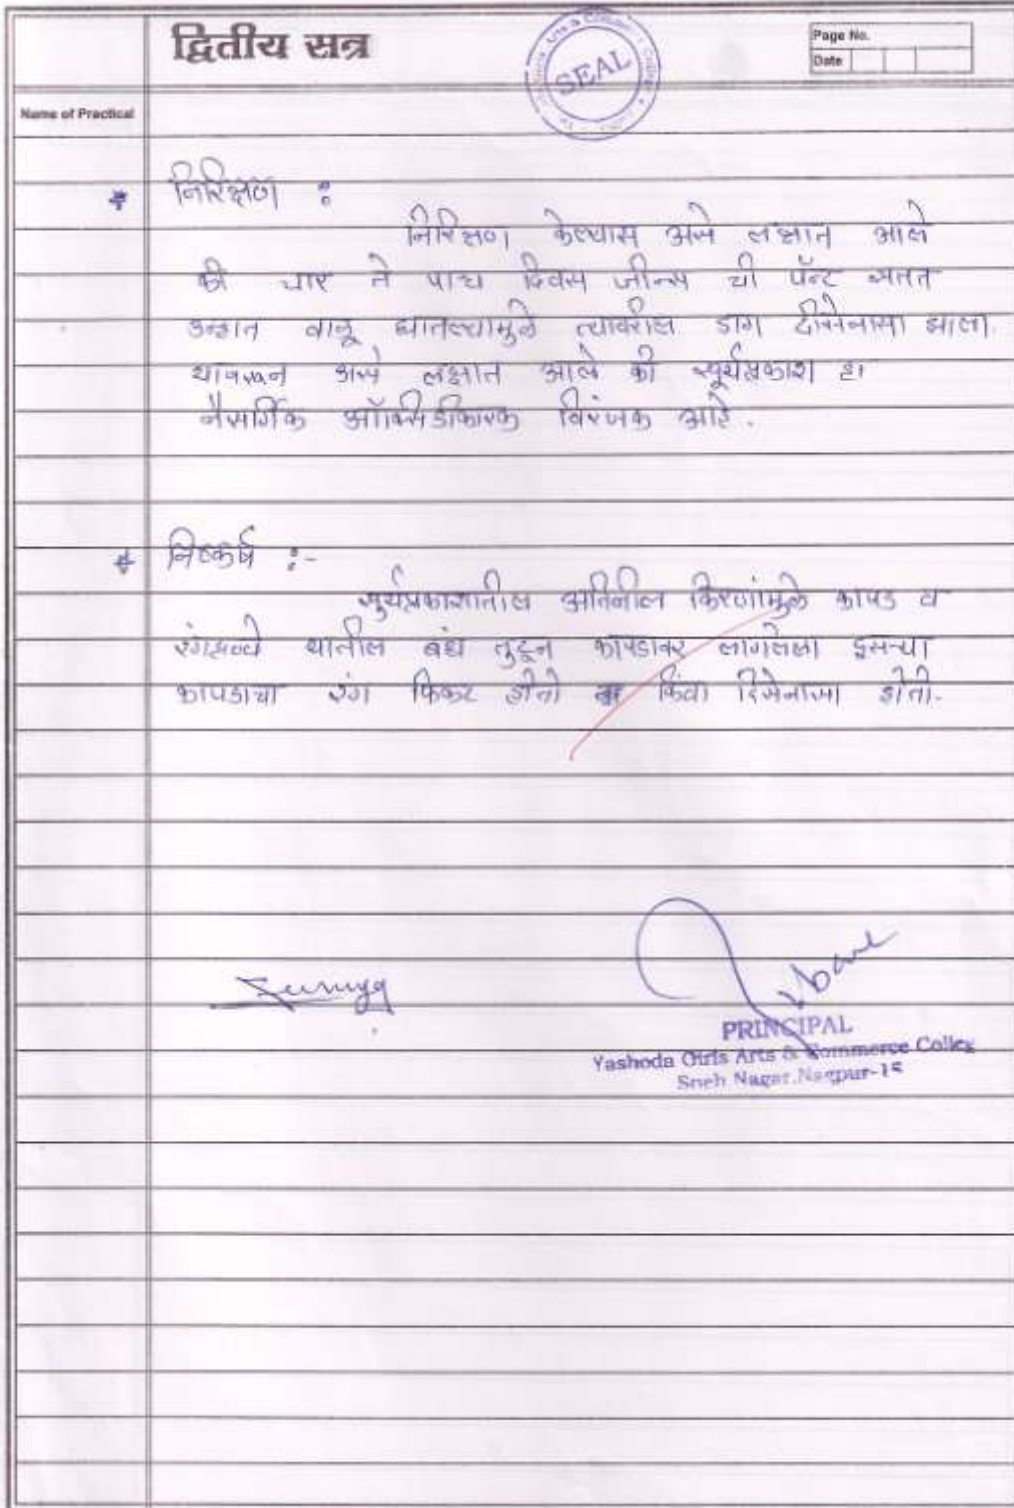 द्वितीय सत्र
SEAL
Page No.
Date
Name of Practical
* निरिक्षण :
निरिक्षण केल्यास असे लक्षात आले
की चार ते पाच दिवस जीन्स ची पॅन्ट सतत
उन्हात वाळू घातल्यामुळे त्यावरील डाग दीसेनासा झाला.
यावरून असे लक्षात आले की सूर्यप्रकाश हा
नैसर्गिक ऑक्सिडीकारक विरंजक आहे.
* निष्कर्ष :-
सूर्यप्रकाशातील अतिनील किरणांमुळे कापड व
रंगद्रव्ये यातील बंध तुटून कापडावर लागलेला दुसऱ्या
कापडाचा रंग फिकट होतो किंवा दिसेनासा होतो.
PRINCIPAL
Yashoda Girls Arts & Commerce Colleg
Sneh Nagar, Nagpur-15